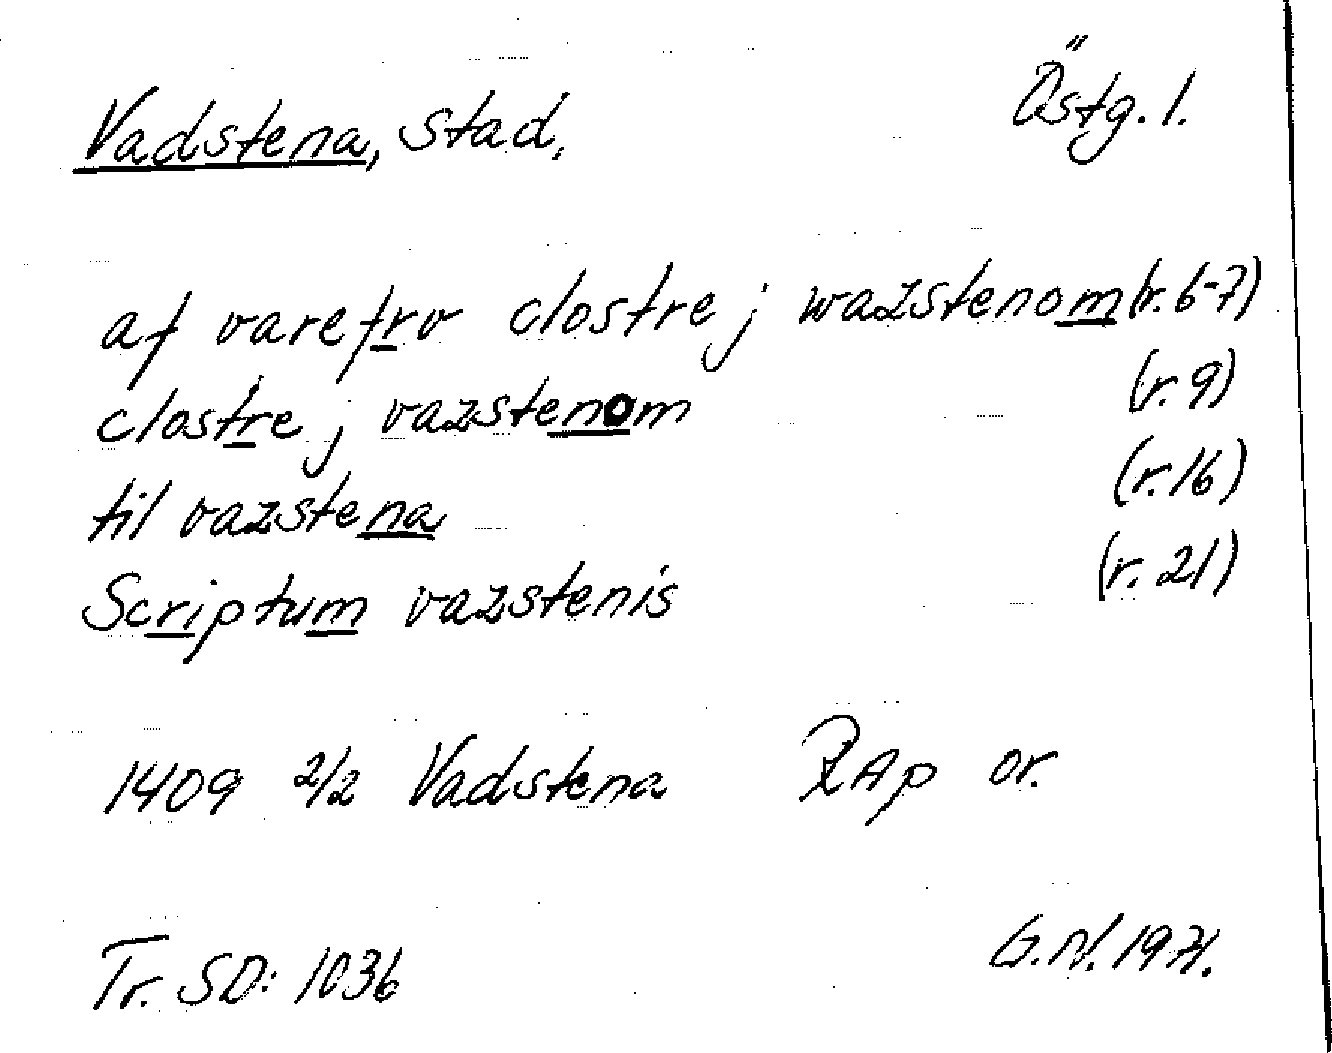 Vadstena, stad, Östg. l.
af varefrv clostre j wazstenom (r. 6-7)
clostre j vazstenom (r. 9)
til vazstena (r. 16)
Scriptum vazstenis (r. 21)
1409 2/2 Vadstena RAp or.
Tr. SD: 1036 G.N. 1971.